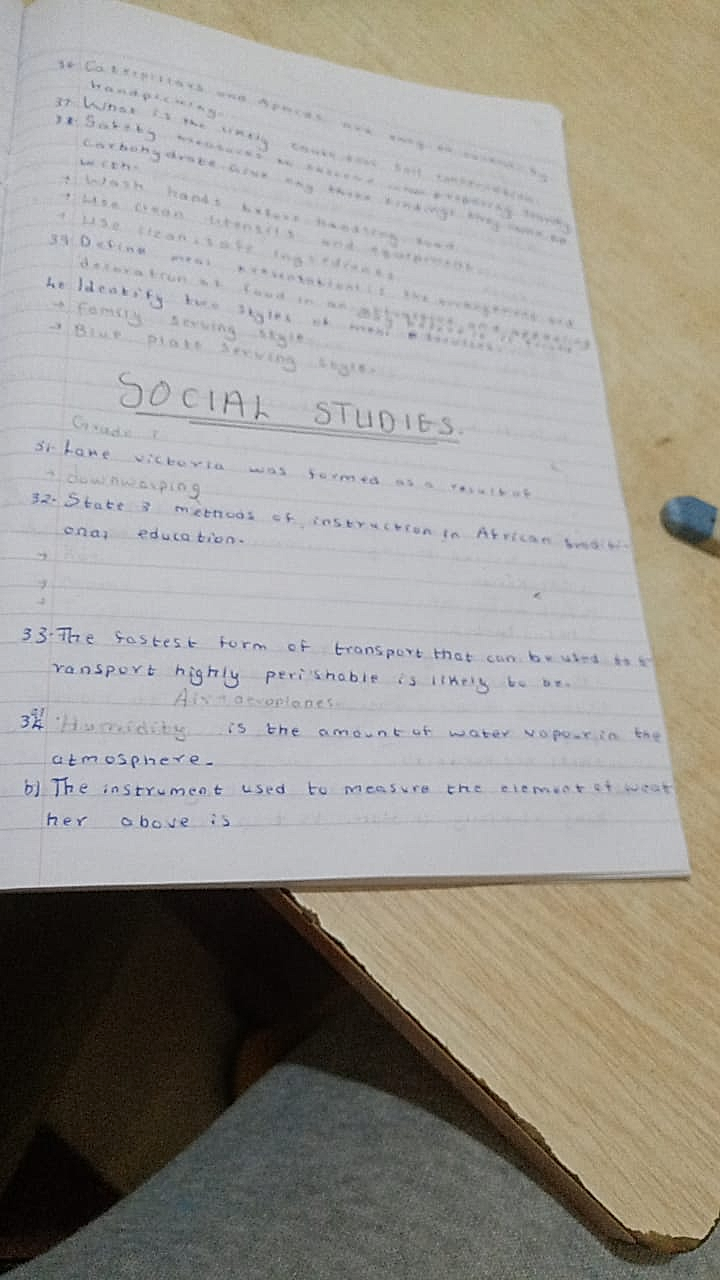 36 Caterpillars and Aphids are easy to control by
handpicking.
37. What is the likely soil conservation.
38. Safety measures to observe when preparing starchy
carbohydrate. Give any three findings they came up
with.
→ Wash hands before handling food.
→ Use clean utensils and equipment.
→ Use clean, safe ingredients
39 Define meal presentation is the arrangement and
decoration of food in an and appealing
40 Identify two styles of meal services.
→ Family serving style.
→ Blue plate serving style.
SOCIAL STUDIES.
Grade
31. Lake victoria was formed as a result of
→ downwarping
32. State 3 methods of instruction in African traditi-
onal education.
→
→
→
33. The fastest form of transport that can be used to t
ransport highly perishable is likely to be.
Air → aeroplanes
34 a) Humidity is the amount of water vapour in the
atmosphere.
b) The instrument used to measure the element of weat
her above is